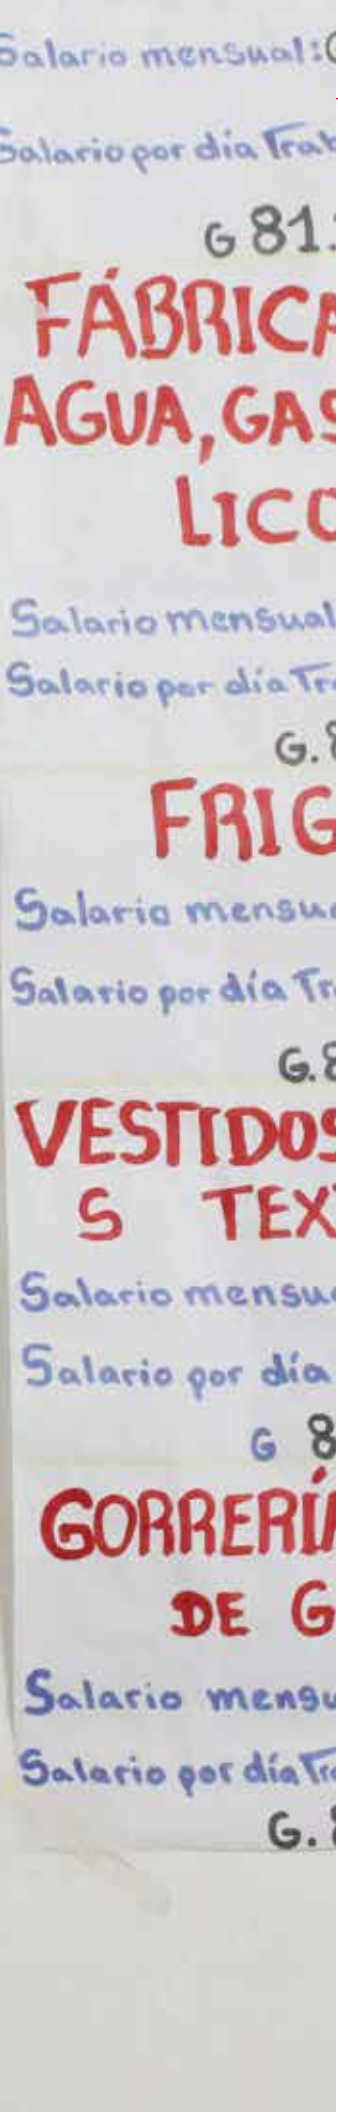 Salario mensual: G
Salario por día Trab
G 81.
FÁBRICA
AGUA, GAS
LICO
Salario mensual
Salario por día Tr
G. 8
FRIG
Salario mensu
Salario por día Tr
G. 8
VESTIDOS
S TEXT
Salario mensu
Salario por día
G 8
GORRERÍA
DE G
Salario mensu
Salario por día Tr
G. 8